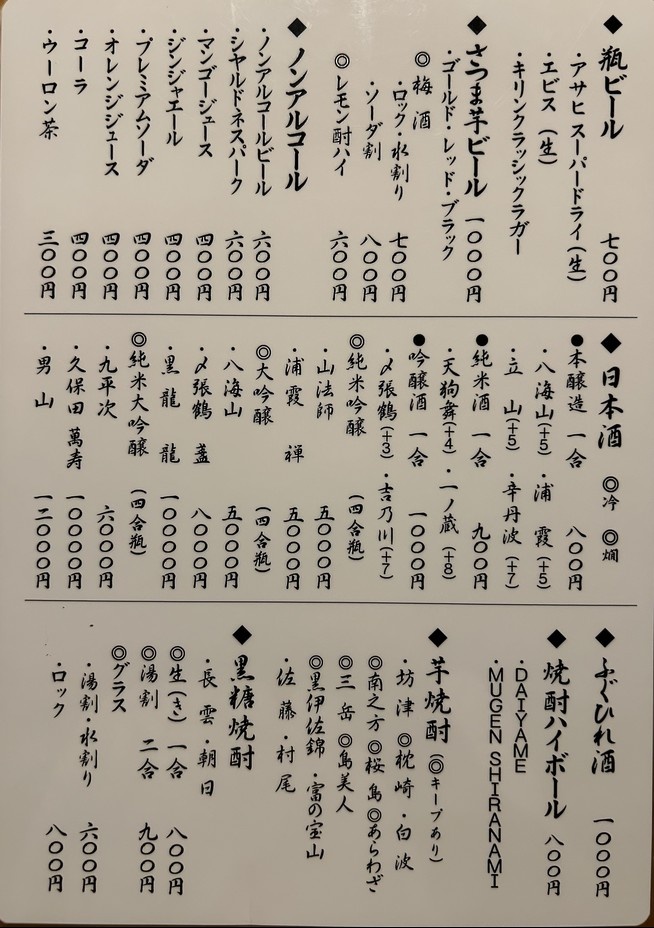 ◆瓶ビール 七〇〇円
・アサヒ スーパードライ(生)
・エビス (生)
・キリンクラッシックラガー
◆さつま芋ビール 一〇〇〇円
・ゴールド・レッド・ブラック
◎梅酒
・ロック・水割り 七〇〇円
・ソーダ割 八〇〇円
◎レモン酎ハイ 六〇〇円
◆ノンアルコール
・ノンアルコールビール 六〇〇円
・シヤルドネスパーク 六〇〇円
・マンゴージュース 四〇〇円
・ジンジャエール 四〇〇円
・プレミアムソーダ 四〇〇円
・オレンジジュース 四〇〇円
・コーラ 四〇〇円
・ウーロン茶 三〇〇円
◆日本酒 ◎冷 ◎燗
●本醸造 一合 八〇〇円
・八海山(+5) ・浦霞(+5)
・立山(+5) ・辛丹波(+7)
●純米酒 一合 九〇〇円
・天狗舞(+4) ・一ノ蔵(+8)
●吟醸酒 一合 一〇〇〇円
・〆張鶴(+3) ・吉乃川(+7)
◎純米吟醸 (四合瓶)
・山法師 五〇〇〇円
・浦霞 禅 五〇〇〇円
◎大吟醸 (四合瓶)
・八海山 五〇〇〇円
・〆張鶴 盞 八〇〇〇円
・黒龍 龍 一〇〇〇〇円
◎純米大吟醸 (四合瓶)
・九平次 六〇〇〇円
・久保田 萬寿 一〇〇〇〇円
・男山 一二〇〇〇円
◆ふぐひれ酒 一〇〇〇円
◆焼酎ハイボール 八〇〇円
・DAIYAME
・MUGEN SHIRANAMI
◆芋焼酎 (◎キープあり)
・坊津 ◎枕崎 ・白波
◎南之方 ◎桜島 ◎あらわざ
◎三岳 ◎島美人
◎黒伊佐錦 ・富の宝山
・佐藤 ・村尾
◆黒糖焼酎
・長雲・朝日
◎生(き) 一合 八〇〇円
◎湯割 二合 九〇〇円
◎グラス
・湯割・水割り 六〇〇円
・ロック 八〇〇円